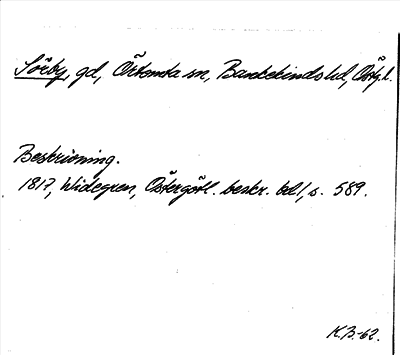 Sörby, gd, Örtomta sn, Bankekinds hd, Östgl.
Beskrivning.
1817, Widegren, Östergötl. beskr. bd 1, s. 589.
K.B-62.